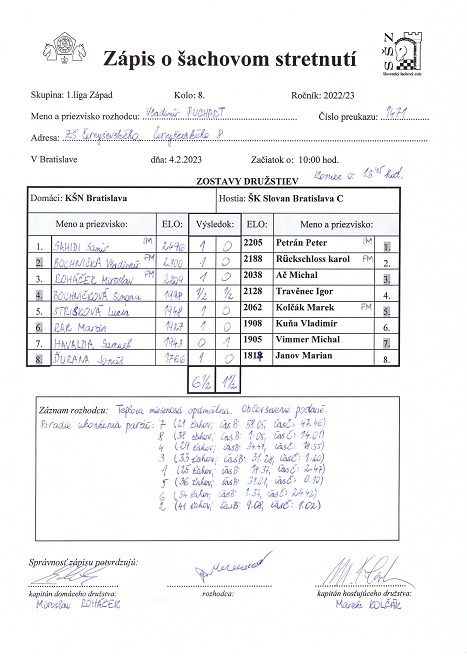 Zápis o šachovom stretnutí
SŠZ
Slovenský šachový zväz
Skupina: 1.liga Západ Kolo: 8. Ročník: 2022/23
Meno a priezvisko rozhodcu: Vladimír PUCHART Číslo preukazu: 1471
Adresa: ZŠ Černyševského, Černyševského 8
V Bratislave dňa: 4.2.2023 Začiatok o: 10:00 hod.
Koniec o 13 45 hod.
ZOSTAVY DRUŽSTIEV
Domáci: KŠN Bratislava Hostia: ŠK Slovan Bratislava C
Meno a priezvisko: ELO: Výsledok: ELO: Meno a priezvisko:
1. SAHIDI Samir IM 2496 1 0 2205 Petrán Peter IM 1.
2. BOCHNIČKA Vladimír FM 2300 1 0 2188 Rückschloss karol FM 2.
3. ROHÁČEK Miroslav FM 2209 1 0 2038 Ač Michal 3.
4. BOCHNIČKOVÁ Simona 1998 1/2 1/2 2128 Travěnec Igor 4.
5. STRIŠKOVÁ Lucia 1948 1 0 2062 Kolčák Marek FM 5.
6. RAK Marián 1927 1 0 1908 Kuňa Vladimír 6.
7. HAVALDA Samuel 1943 0 1 1905 Vimmer Michal 7.
8. ĎURANA Jonáš 1766 1 0 Janov Marian 8.
6 1/2 1 1/2
Záznam rozhodcu: Teplota miestnosti optimálna. Občerstvenie podané.
Poradie ukončenia partií: 7 (21 ťahov, čas B: 59.05, čas Č: 47.46)
8 (38 ťahov, čas B: 1.05, čas Č: 14.01)
4 (29 ťahov, čas B: 34.49, čas Č: 18.55)
3 (33 ťahov, čas B: 31.28, čas Č: 1.20)
1 (25 ťahov, čas B: 18.37, čas Č: 2.47)
5 (36 ťahov, čas B: 31.01, čas Č: 0.10)
6 (34 ťahov, čas B: 1.37, čas Č: 24.46)
2 (41 ťahov, čas B: 9.08, čas Č: 1.02)
Správnosť zápisu potvrdzujú:
kapitán domáceho družstva: rozhodca: kapitán hosťujúceho družstva:
Miroslav ROHÁČEK Marek KOLČÁK